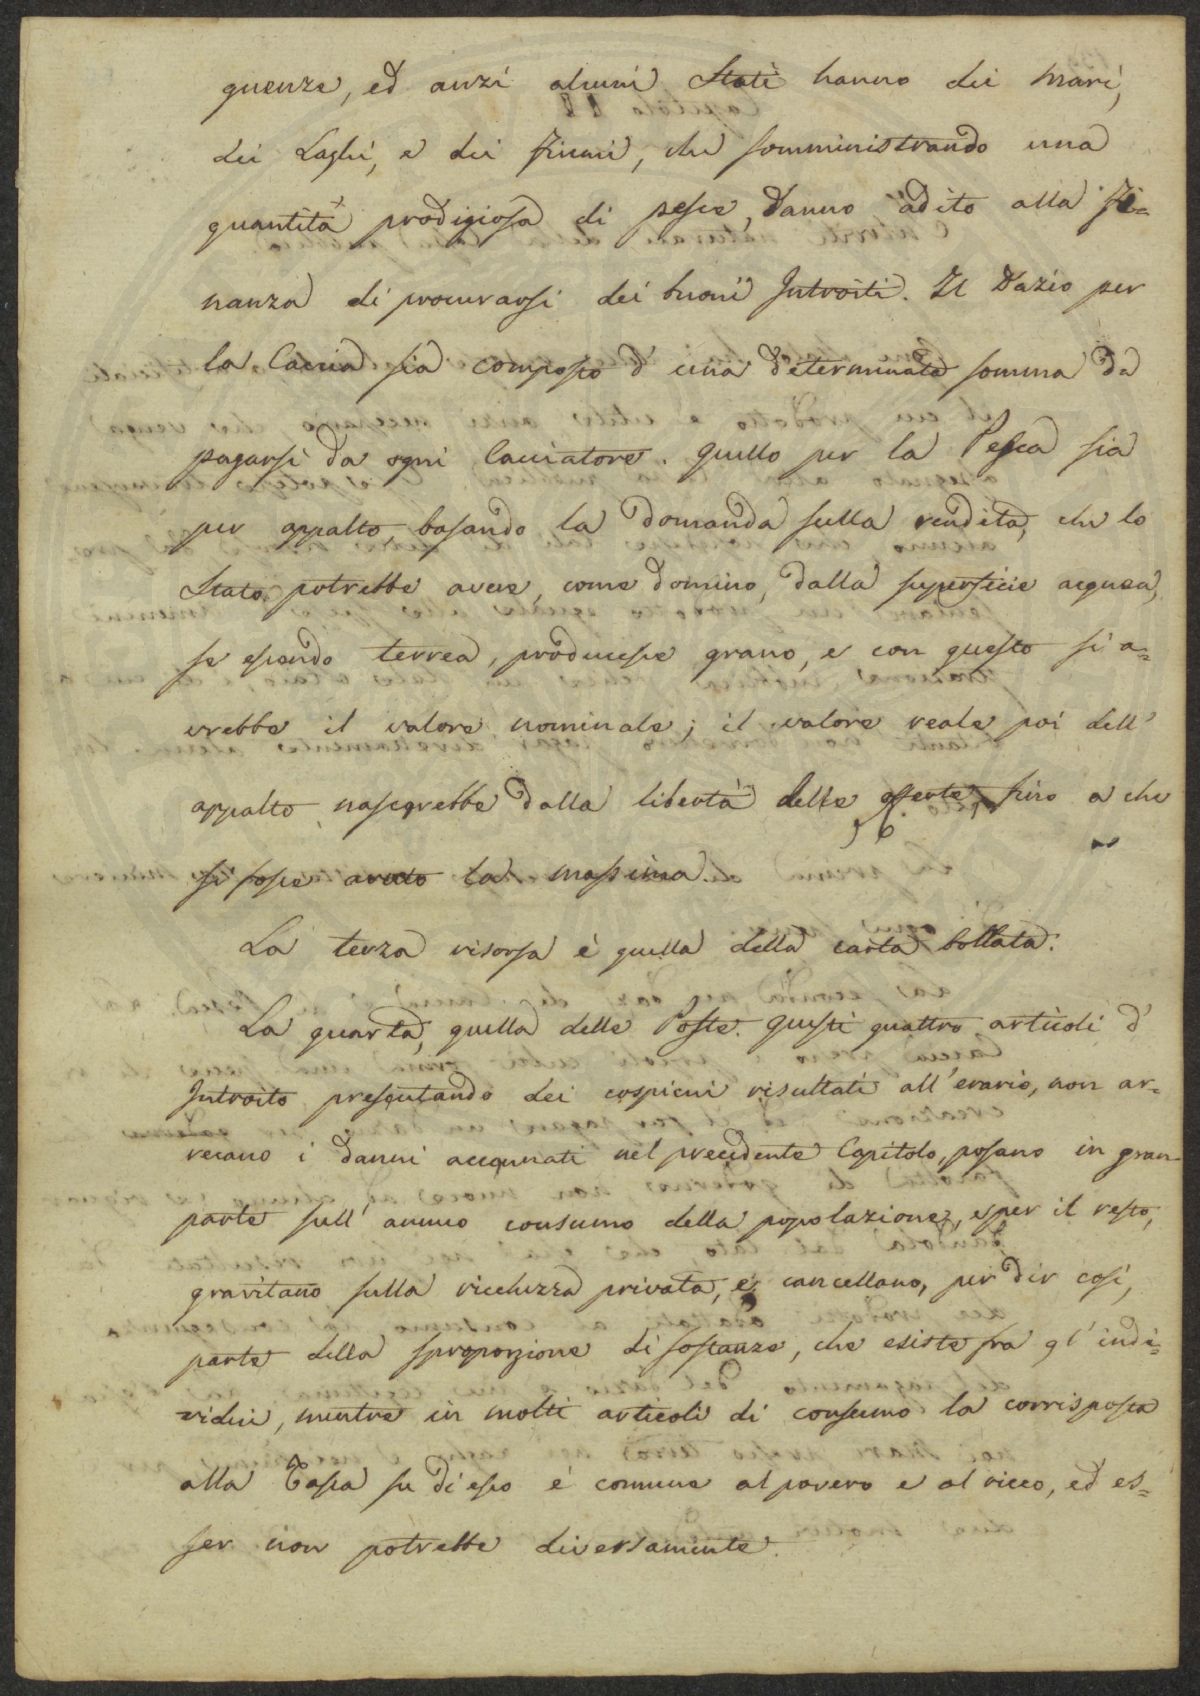 guenze, ed anzi alcuni Stati hanno dei Mari,
dei Laghi, e dei Fiumi, che somministrando una
quantità prodigiosa di pesce, danno adito alla Fi=
nanza di procurarsi dei buoni Introiti. Il Dazio per
la Caccia sia composto d'una determinata somma da
pagarsi da ogni Cacciatore. Quello per la Pesca sia
per appalto, basando la domanda sulla rendita, che lo
Stato potrebbe avere, come domino, dalla superficie acquea,
se essendo terrea, producesse grano, e con questo si a=
vrebbe il valore nominale; il valore reale poi dell'
appalto nascerebbe dalla libertà delle offerte, fino a che
si fosse avuto la massima.
La terza risorsa è quella della carta bollata.
La quarta, quella delle Poste. Questi quattro articoli d'
Introito presentando dei cospicui risultati all'erario, non ar=
recano i danni accennati nel precedente Capitolo, posano in gran
parte sull'annuo consumo della popolazione, e per il resto,
gravitano sulla ricchezza privata, e cancellano, per dir così,
parte della sproporzione di sostanze, che esiste fra gl'indi=
vidui, mentre in molti articoli di consumo la corrisposta
alla Tassa su di esso è comune al povero e al ricco, ed es=
ser non potrebbe diversamente.